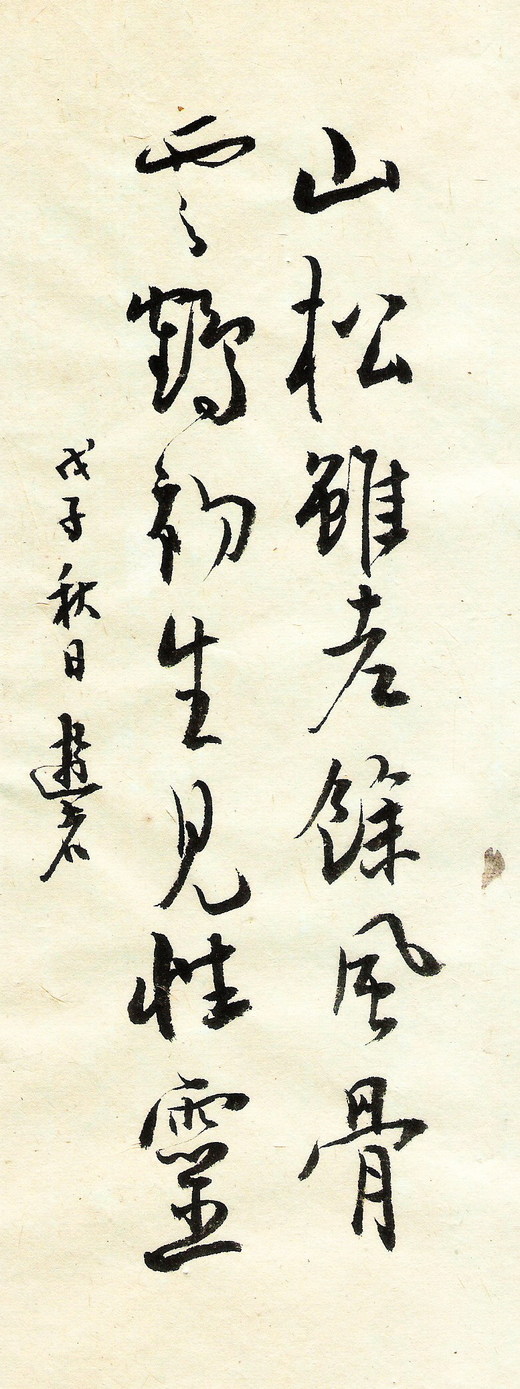 山松雖老餘風骨
雲鶴初生見性靈
戊子秋日